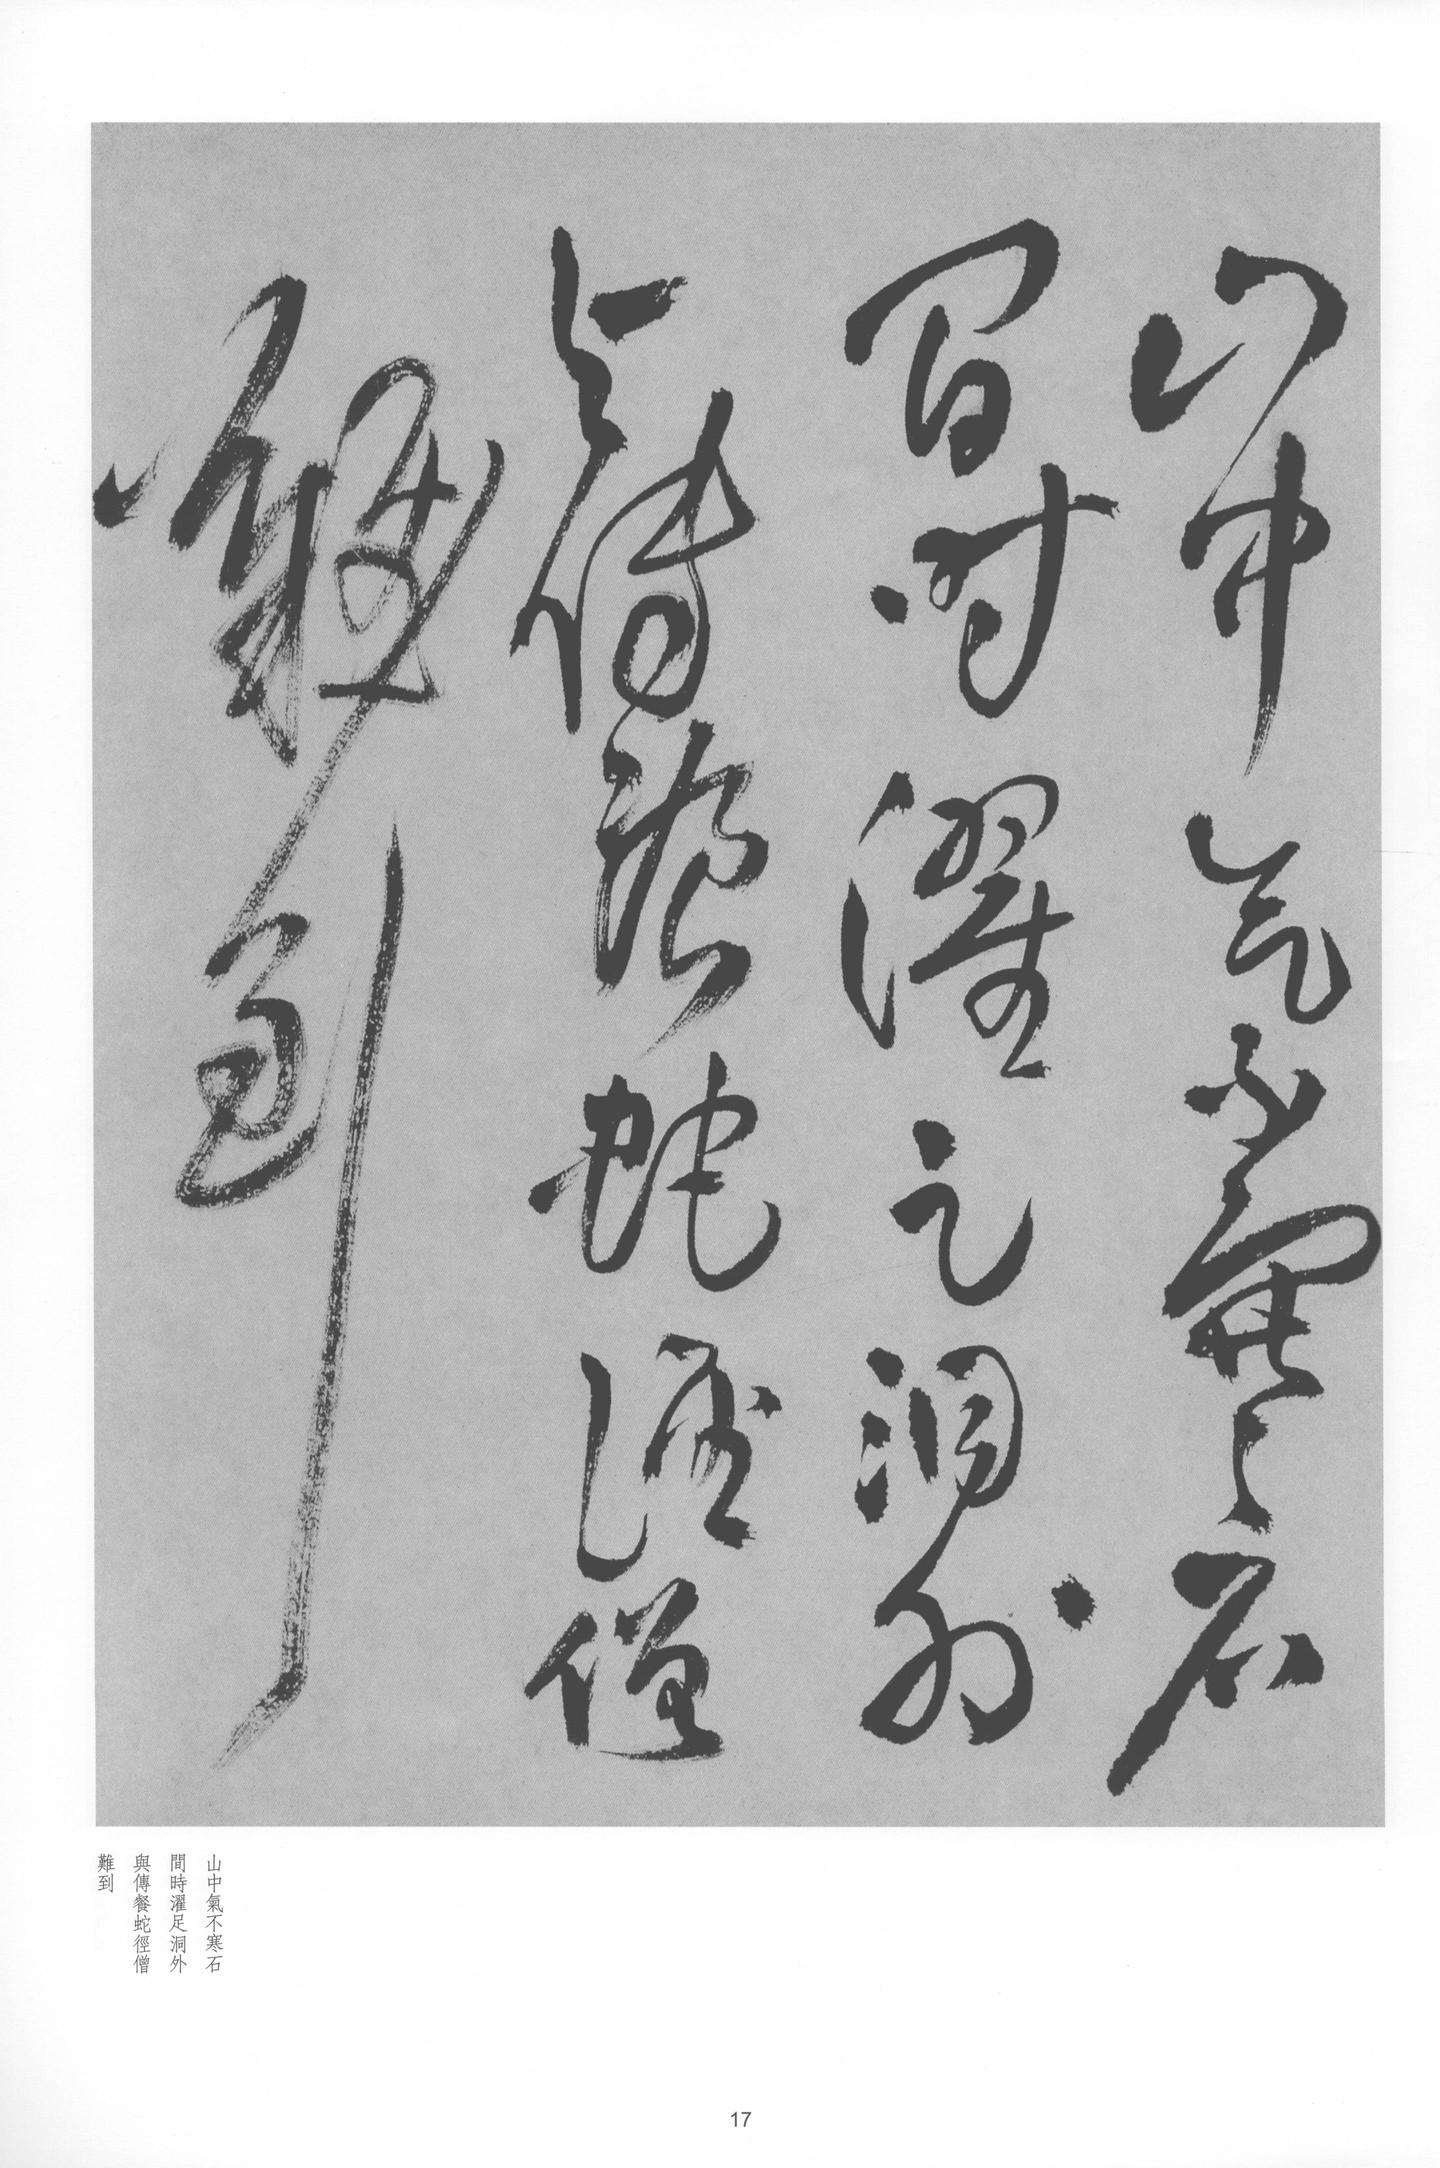 山中氣不寒石
間時濯足洞外
與傳餐蛇徑僧
難到
山中氣不寒石
間時濯足洞外
與傳餐蛇徑僧
難到
17